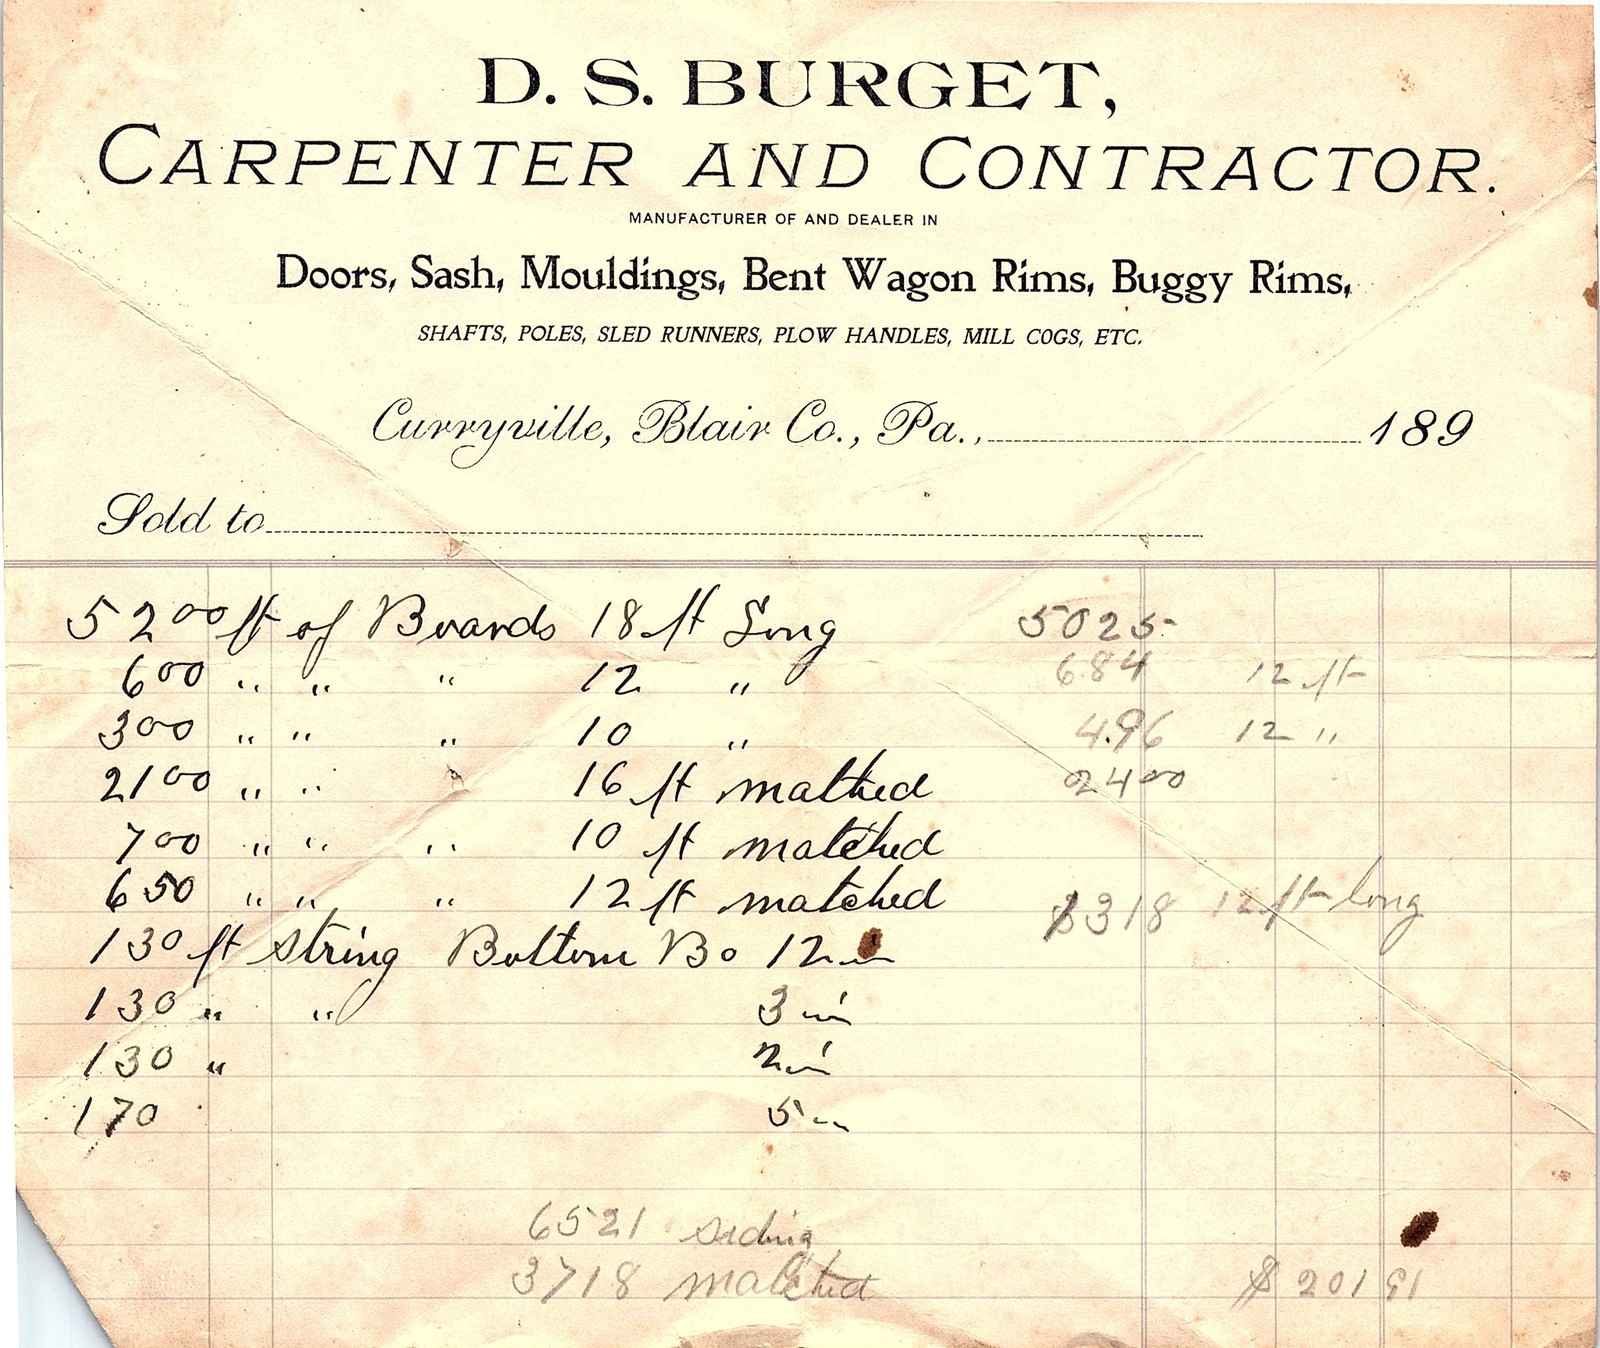 D. S. BURGET,
CARPENTER AND CONTRACTOR.
MANUFACTURER OF AND DEALER IN
Doors, Sash, Mouldings, Bent Wagon Rims, Buggy Rims,
SHAFTS, POLES, SLED RUNNERS, PLOW HANDLES, MILL COGS, ETC.
Curryville, Blair Co., Pa., 189
Sold to
5200 ft of Boards 18 ft Long 5025
600 " " " 12 " 684 12 ft
300 " " " 10 " 4.96 12 "
2100 " " " 16 ft matched 2400
700 " " " 10 ft matched
650 " " " 12 ft matched 318 12 ft long
130 ft string Bottom Bo 12 in
130 " " 3 in
130 " 2 in
170 5 in
6521 siding
3718 matched $ 201 91